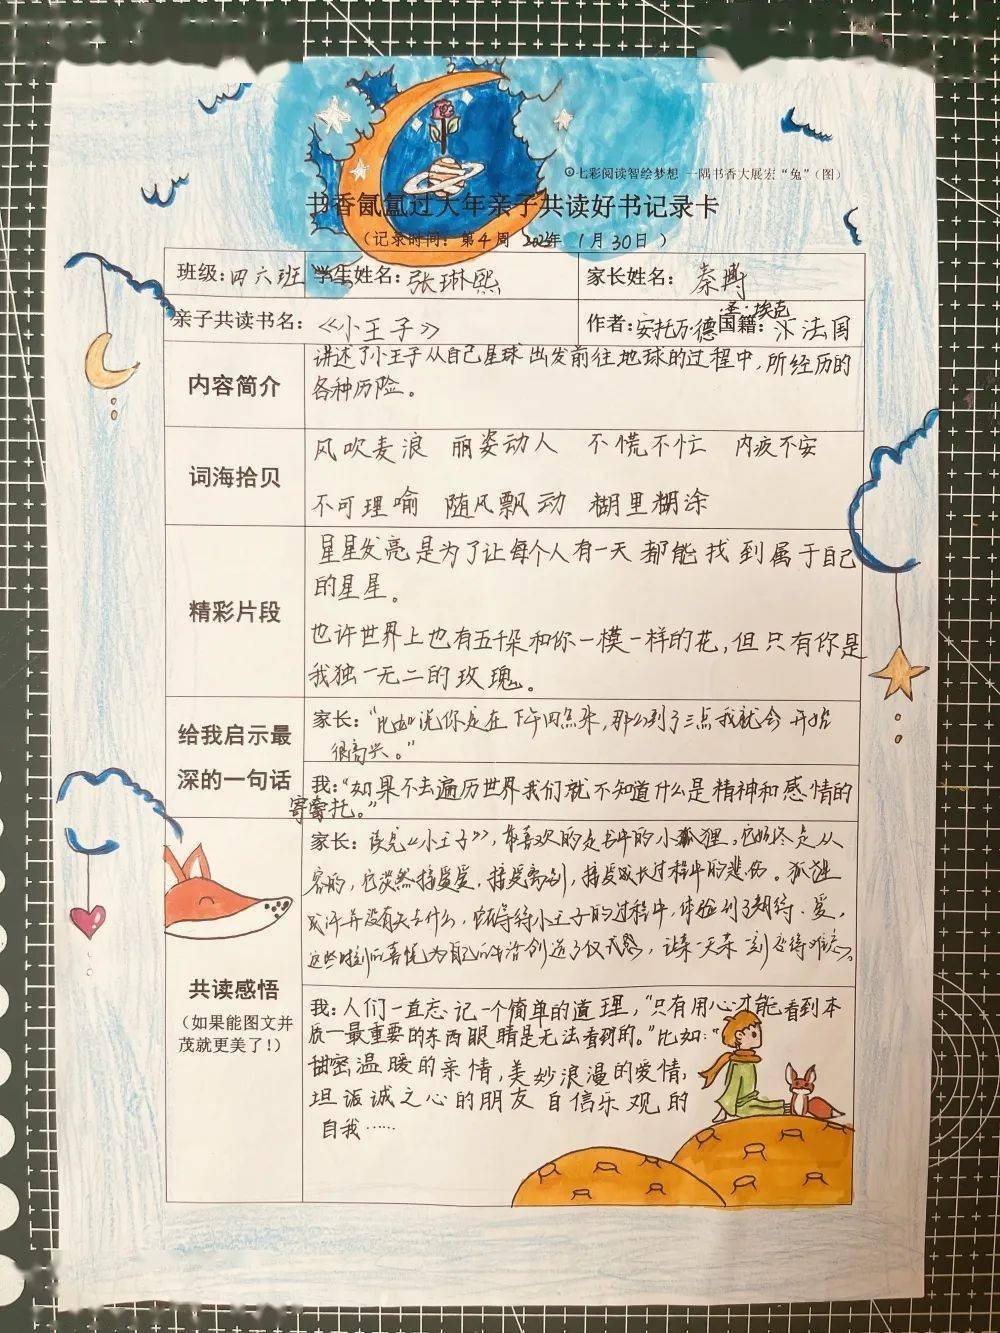 七彩阅读智绘梦想 一隅书香大展宏“兔”（图）
书香氤氲过大年亲子共读好书记录卡
（记录时间：第4周 2023年 1月30日 ）
班级：四六班 学生姓名：张琳熙 家长姓名：秦
亲子共读书名：《小王子》 作者：安托万·德·圣·埃克 国籍：法国
内容简介
讲述了小王子从自己星球出发前往地球的过程中，所经历的
各种历险。
词海拾贝
风吹麦浪 丽姿动人 不慌不忙 内疚不安
不可理喻 随风飘动 糊里糊涂
精彩片段
星星发亮是为了让每个人有一天都能找到属于自己
的星星。
也许世界上也有五千朵和你一模一样的花，但只有你是
我独一无二的玫瑰。
给我启示最
深的一句话
家长：“比如说你定在下午四点来，那么到了三点我就会开始
很高兴。”
我：“如果不去遍历世界我们就不知道什么是精神和感情的
寄托。”
共读感悟
（如果能图文并
茂就更美了！）
家长：读完《小王子》，最喜欢的是书中的小狐狸，它始终是从
容的，它淡然接受爱，接受离别，接受成长过程中的悲伤。狐狸
或许并没有失去什么，它在等待小王子的过程中，体验到了期待、爱，
这些时刻的喜悦为自己的生活创造了仪式感，让某一天某一刻变得难忘。
我：人们一直忘记一个简单的道理，“只有用心才能看到本
质一最重要的东西眼睛是无法看到的。”比如：“
甜密温暖的亲情，美妙浪漫的爱情，
坦诚之心的朋友自信乐观的
自我……